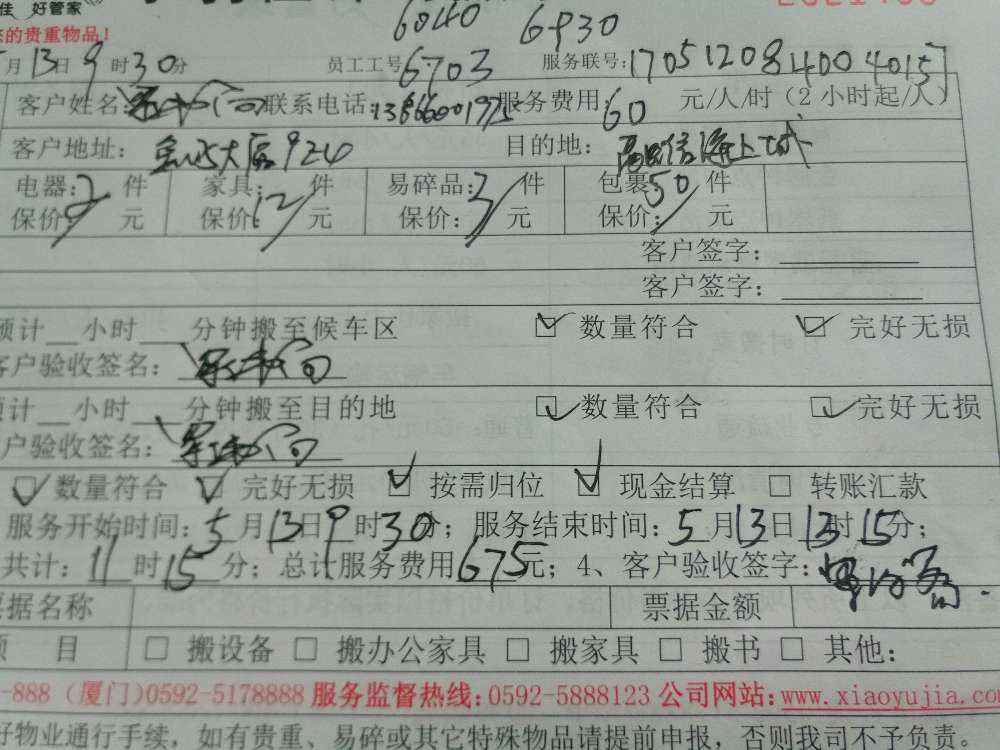 佳 好管家
的贵重物品!
6040 6930
月13日9时30分 员工工号:6703 服务联号:17051208400 4015
客户姓名: 联系电话:13866001975 服务费用:60 元/人/时(2小时起/人)
客户地址: 大厦924 目的地: 海上城
电器:2件 家具:12件 易碎品:3件 包裹:50件
保价:/元 保价:/元 保价:/元 保价:/元
客户签字:
客户签字:
预计__小时__分钟搬至候车区 ☑数量符合 ☑完好无损
客户验收签名:
预计__小时__分钟搬至目的地 ☑数量符合 ☑完好无损
客户验收签名:
☑数量符合 ☑完好无损 ☑按需归位 ☑现金结算 □转账汇款
服务开始时间:5月13日9时30分;服务结束时间:5月13日13时15分;
共计:11时15分;总计服务费用675元;4、客户验收签字:
票据名称 票据金额
项 目 □搬设备 □搬办公家具 □搬家具 □搬书 □其他:
-888(厦门)0592-5178888 服务监督热线:0592-5888123 公司网站:www.xiaoyujia.com
好物业通行手续,如有贵重、易碎或其它特殊物品请提前申报,否则我司不予负责。